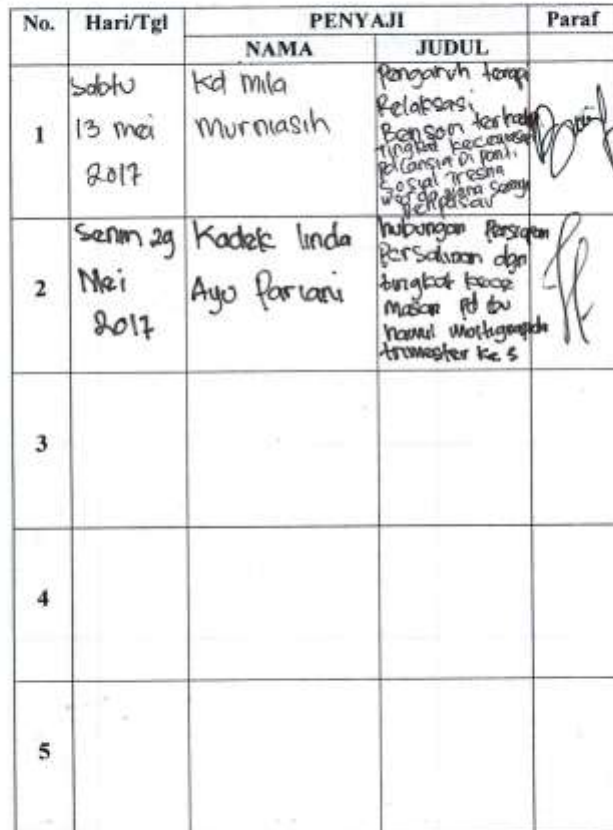 No. Hari/Tgl PENYAJI Paraf
NAMA JUDUL
1
Sabtu
13 mei
2017
Kd Mila
Murniasih
Pengaruh terapi
Relaksasi
Benson terhadap
Tingkat kecemasan
Pd Lansia Di Panti
Sosial Tresna
Denpasar
2
Senin 29
Mei
2017
Kadek linda
Ayu Pariani
hubungan Persiapan
Persalinan dgn
tingkat kece
masan pd ibu
hamil
trimester ke 3
3
4
5